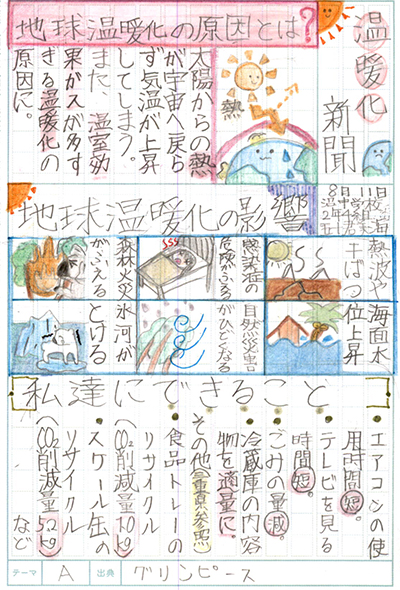 温暖化
新聞
地球温暖化の原因とは?
太陽からの熱
が宇宙へ戻ら
ず気温が上昇
してしまう。
また、温室効
果ガスが多す
ぎる温暖化の
原因に。
熱
地球温暖化の影響
熱波や
干ばつ
感染症の
危険がふえる
森林火災
がふえる
海面水
位上昇
自然災害
がひどくなる
氷河が
とける
私達にできること
・エアコンの使
用時間短。
・テレビを見る
時間短。
・ごみの量減。
・冷蔵庫の内容
物を適量に。
その他(重真参照)
・食品トレーの
リサイクル
(CO2削減量10kg)
・スチール缶の
リサイクル
(CO2削減量5.2kg)
など
テーマ A 出典 グリンピース